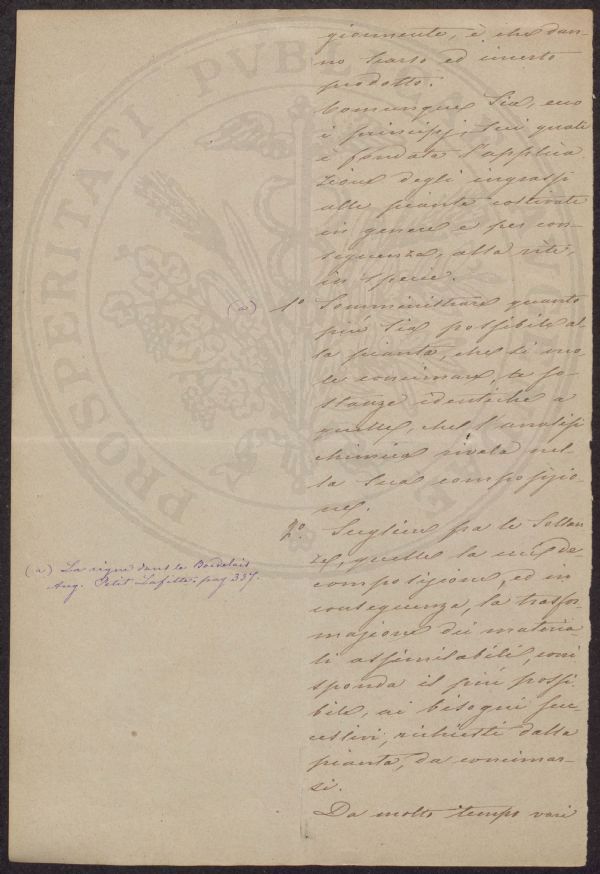 PROSPERITATI PVBLICAE
giormente, è che dan-
no scarso ed incerto
prodotto.
Comunque sia, ecco
i principj, sui quali
è fondata l'applica
zione degli ingrassi
alle piante coltivate
in genere e per con-
seguenza, alla vite,
in specie.
(a) 1º Somministrare quanto
più sia possibile al
la pianta, che si vuo
le concimare, le so-
stanze identiche a
quelle, che l'analisi
chimica rivela nel-
la sua composizio-
ne.
2º. Scegliere fra le sostan
ze, quelle la cui de-
composizione, ed in
conseguenza, la trasfor-
mazione dei materia-
li assimilabili, corri
sponda il più possi-
bile, ai bisogni suc-
cessivi, richiesti dalla
pianta, da concimar-
si.
Da molto tempo varî
(a) La vigne dans le Bordelais
Aug. Petit Lafitte; pag 337.